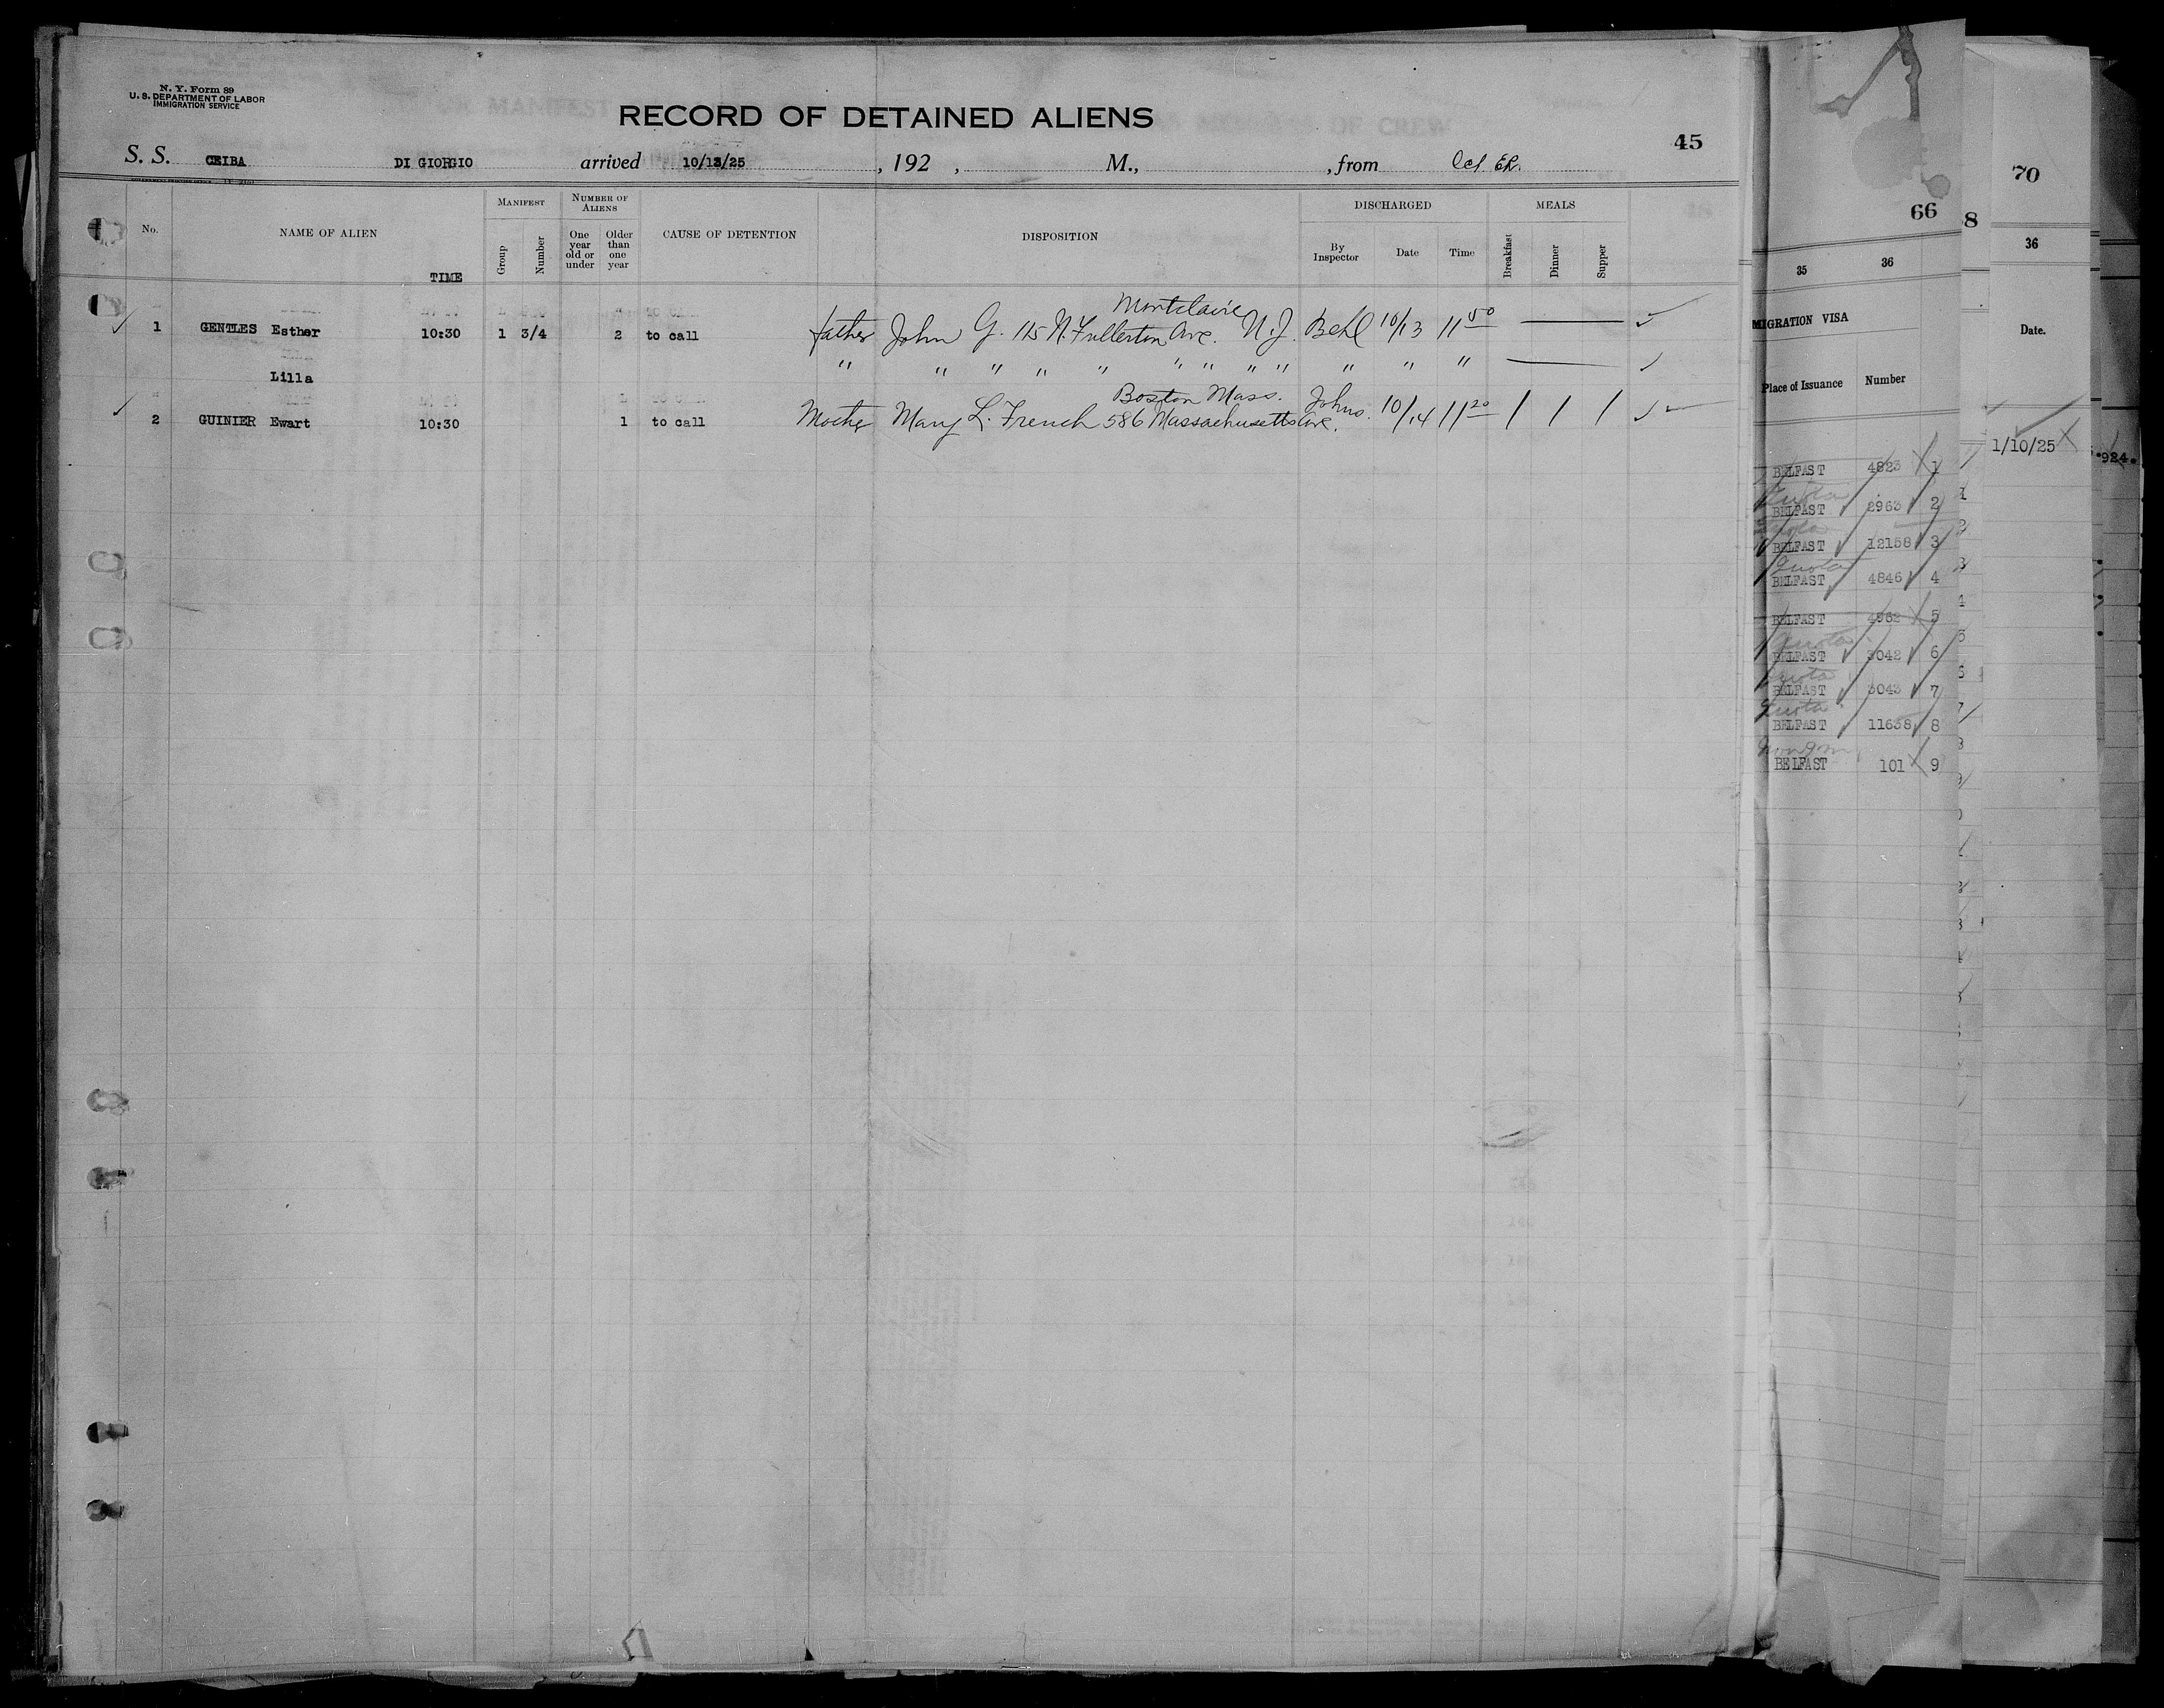 N. Y. Form 89
U. S. DEPARTMENT OF LABOR
IMMIGRATION SERVICE
RECORD OF DETAINED ALIENS
45
S. S. CEIBA DI GIORGIO arrived 10/13/25, 192 , M., , from
No. NAME OF ALIEN TIME MANIFEST Group Number NUMBER OF ALIENS One year old or under Older than one year CAUSE OF DETENTION DISPOSITION DISCHARGED By Inspector Date Time MEALS Breakfast Dinner Supper
Montclaire
1 GENTLES Esther 10:30 1 3/4 2 to call father John G. 115 N. Fullerton Ave. N.J. Behl 10/13 11 50
Lilla " " " " " " " " " " " "
Boston Mass.
2 GUINIER Ewart 10:30 1 to call Mother Mary L. French 586 Massachusetts Ave. Johns. 10/14 11 20 1 1 1
66
35 36
MIGRATION VISA
Place of Issuance Number
BELFAST 4823 1
Quota
BELFAST 2963 2
Quota
BELFAST 12158 3
Quota
BELFAST 4846 4
BELFAST 4962 5
Quota
BELFAST 3042 6
Quota
BELFAST 3043 7
Quota
BELFAST 11638 8
BELFAST 101 9
8
70
36
Date.
1/10/25
924.